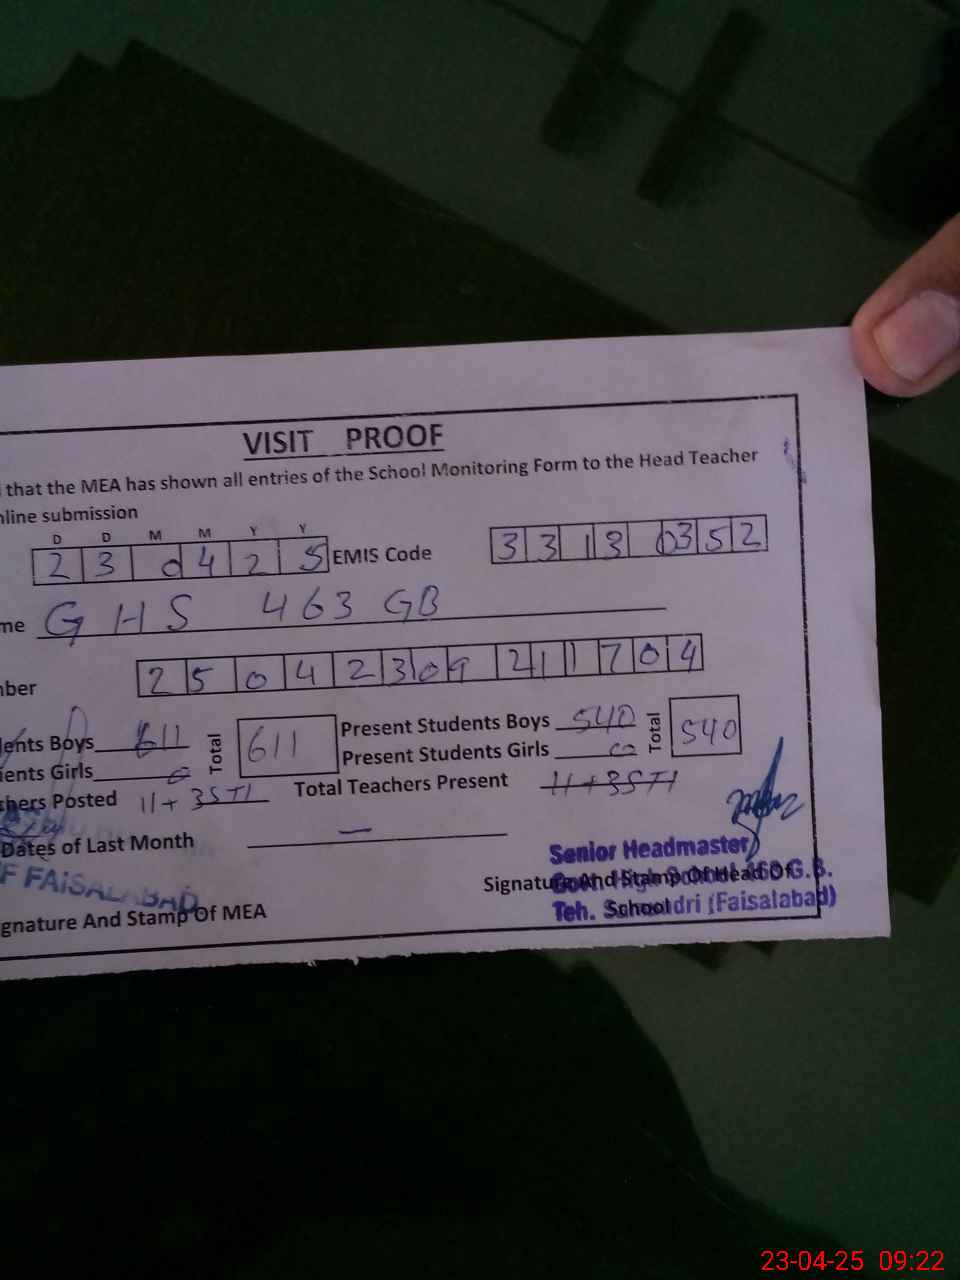 VISIT PROOF
that the MEA has shown all entries of the School Monitoring Form to the Head Teacher
nline submission
D D M M Y Y
2 3 0 4 2 5 EMIS Code 3 3 1 3 0 3 5 2
me GHS 463 GB
nber 2 5 0 4 2 3 0 9 2 1 1 7 0 4
dents Boys 611 Total 611 Present Students Boys 540 Total 540
ents Girls 0 Present Students Girls
chers Posted 11+3STI Total Teachers Present 11+3STI
Dates of Last Month —
Senior Headmaster
F FAISALABAD
Signature And Stamp Of Head Of
G.B.
gnature And Stamp Of MEA
Teh. School dri (Faisalabad)
23-04-25 09:22